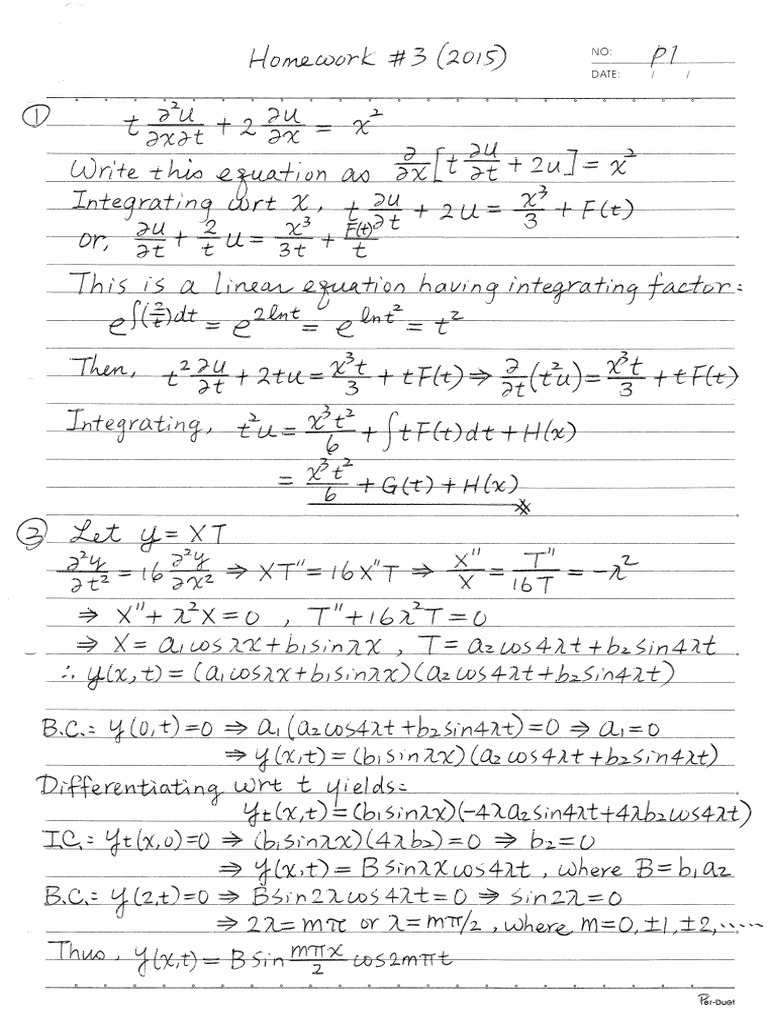 Homework #3 (2015)
NO: P1
DATE: / /
① t ∂²u/∂x∂t + 2 ∂u/∂x = x²
Write this equation as ∂/∂x [t ∂u/∂t + 2u] = x²
Integrating wrt x, t ∂u/∂t + 2u = x³/3 + F(t)
or, ∂u/∂t + 2/t u = x³/3t + F(t)/t
This is a linear equation having integrating factor:
e^∫(2/t)dt = e^2lnt = e^lnt² = t²
Then, t² ∂u/∂t + 2tu = x³t/3 + tF(t) ⇒ ∂/∂t (t²u) = x³t/3 + tF(t)
Integrating, t²u = x³t²/6 + ∫tF(t)dt + H(x)
= x³t²/6 + G(t) + H(x)
③ Let y = XT
∂²y/∂t² = 16 ∂²y/∂x² ⇒ XT'' = 16X''T ⇒ X''/X = T''/16T = -λ²
⇒ X'' + λ²X = 0 , T'' + 16λ²T = 0
⇒ X = a₁cosλx + b₁sinλx , T = a₂cos4λt + b₂sin4λt
∴ y(x,t) = (a₁cosλx + b₁sinλx)(a₂cos4λt + b₂sin4λt)
B.C.: y(0,t) = 0 ⇒ a₁(a₂cos4λt + b₂sin4λt) = 0 ⇒ a₁ = 0
⇒ y(x,t) = (b₁sinλx)(a₂cos4λt + b₂sin4λt)
Differentiating wrt t yields:
yt(x,t) = (b₁sinλx)(-4λa₂sin4λt + 4λb₂cos4λt)
I.C.: yt(x,0) = 0 ⇒ (b₁sinλx)(4λb₂) = 0 ⇒ b₂ = 0
⇒ y(x,t) = Bsinλxcos4λt , where B = b₁a₂
B.C.: y(2,t) = 0 ⇒ Bsin2λcos4λt = 0 ⇒ sin2λ = 0
⇒ 2λ = mπ or λ = mπ/2 , where m = 0, ±1, ±2, .....
Thus, y(x,t) = Bsin mπx/2 cos2mπt
Per-Duet